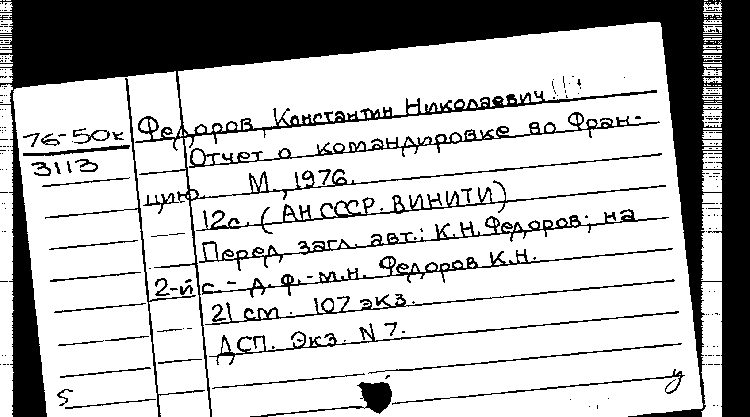 76-50к
3113
Федоров, Константин Николаевич!!!
Отчет о командировке во Фран-
цию. М., 1976.
12с. (АН СССР. ВИНИТИ)
Перед загл. авт.: К.Н. Федоров; на
2-й с. - д. ф.-м.н. Федоров К.Н.
21 см. 107 экз.
ДСП. Экз. N 7.
5
у